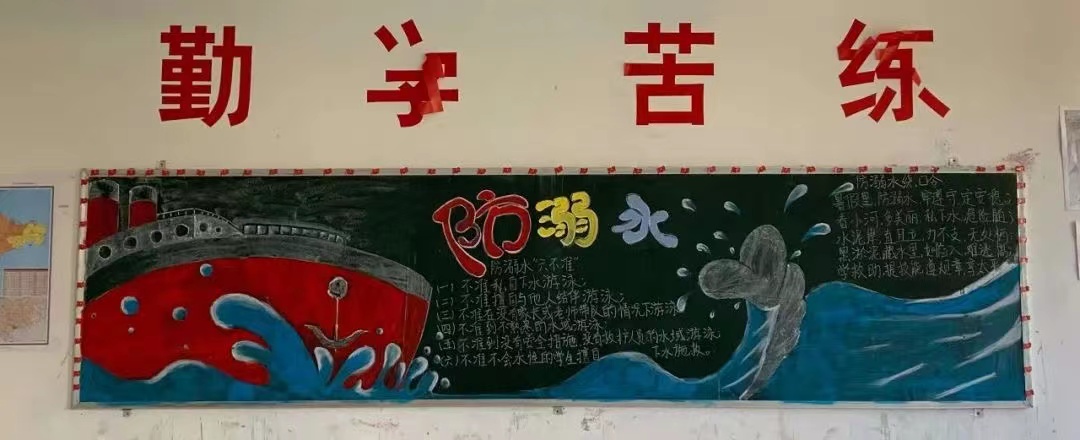 勤学苦练
防溺水
防溺水"六不准"
(一)不准私自下水游泳;
(二)不准擅自与他人结伴游泳;
(三)不准在没有家长或老师带队的情况下游泳
(四)不准到不熟悉的水域游泳;
(五)不准到没有安全措施,没有救护人员的水域游泳
(六)不准不会水性的学生擅自下水施救。
防溺水绕口令
暑假里,防溺水
香小河,多美丽,私下水,危险随;
水泥岸,直且 力不支,无处
黑淤泥,藏水里,
学校